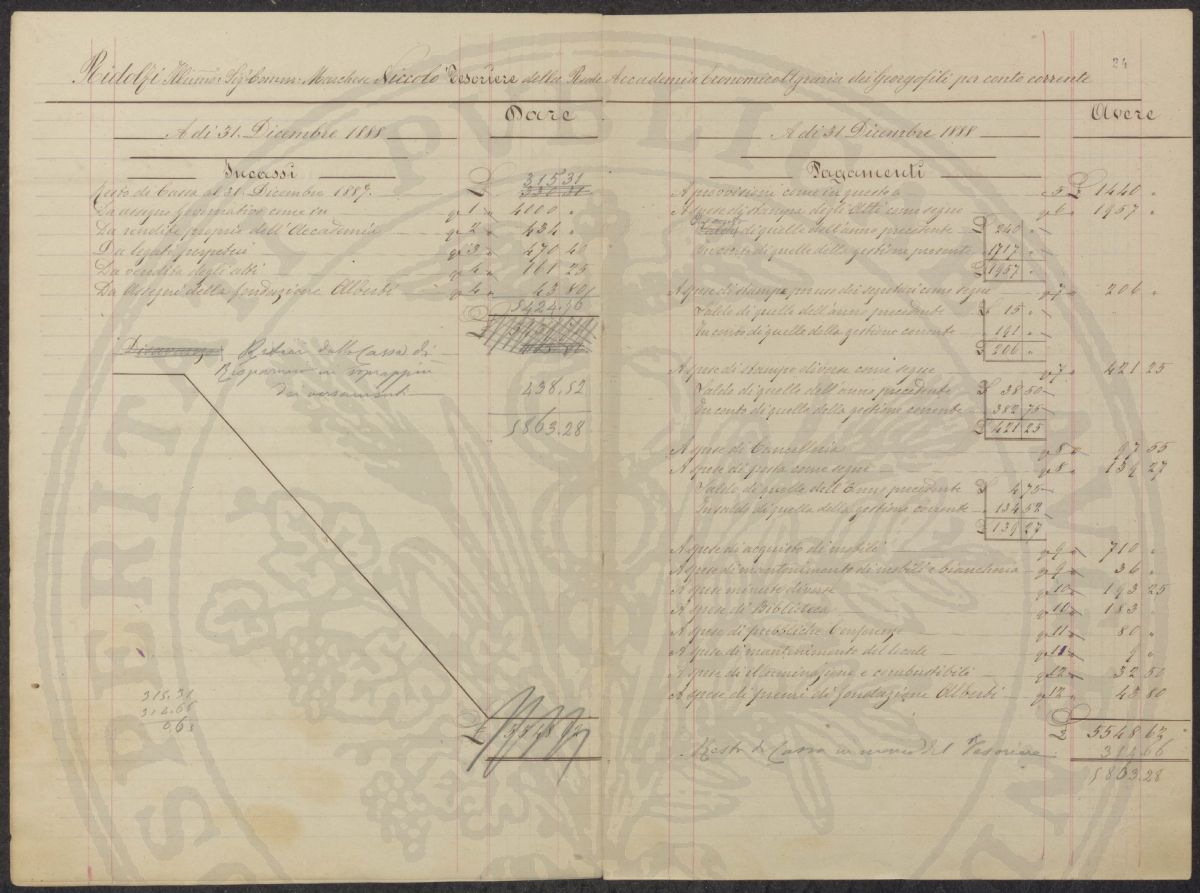 24
Ridolfi Illmo: Sig: Comm: Marchese Niccolò Tesoriere della Reale Accademia Economico Agraria dei Georgofili per conto corrente
Dare
A dì 31. Dicembre 1888
Incassi
Resto di Cassa al 31. Dicembre 1887. £ 315.31
Da assegno Governativo come in 1 " 4000 "
Da rendite proprie dell'Accademia 2 " 434 "
Da legati perpetui 3 " 470 40
Da vendita degli atti 4 " 161 25
Da Assegni della fondazione Alberti 4 " 43 80
5424.76
Ritiro dalla Cassa di
Risparmio in soprappiù
dei versamenti 438.52
5863.28
315.31
314.66
0,65
£
Avere
A dì 31. Dicembre 1888
Pagamenti
A provvisioni come in questo 5 £ 1440 "
A spese di stampa degli Atti come segue 6 " 1957 "
di quelle dell'anno precedente £ 240 "
In conto di quelle della gestione presente 1717 "
£ 1957 "
A spese di stampa come segue 7 " 206 "
Saldo di quelle dell'anno precedente £ 15 "
In conto di quelle della gestione corrente " 191 "
£ 206 "
A spese di stampe diverse come segue 7 " 421 25
Saldo di quelle dell'anno precedente £ 38 50
In conto di quelle della gestione corrente 382 75
£ 421 25
A spese di Cancelleria 8 " 97 55
A spese di posta come segue 8 " 139 27
Saldo di quelle dell'Anno precedente £ 4 75
In saldo di quelle della gestione corrente " 134 52
£ 139 27
A spese di acquisto di mobili 9 " 710 "
A spese di mantenimento di mobili e biancheria 9 " 36 "
A spese minute diverse 10 " 193 25
A spese di Biblioteca 10 " 183 "
A spese di pubbliche Conferenze 11 " 80 "
A spese di mantenimento del locale 11 " 9 "
A spese di illuminazione e combustibili 12 " 32 50
A spese di premi di fondazione Alberti 12 " 43 80
£ 5548 62
Resto di Cassa in mano del Tesoriere 314 66
5863.28